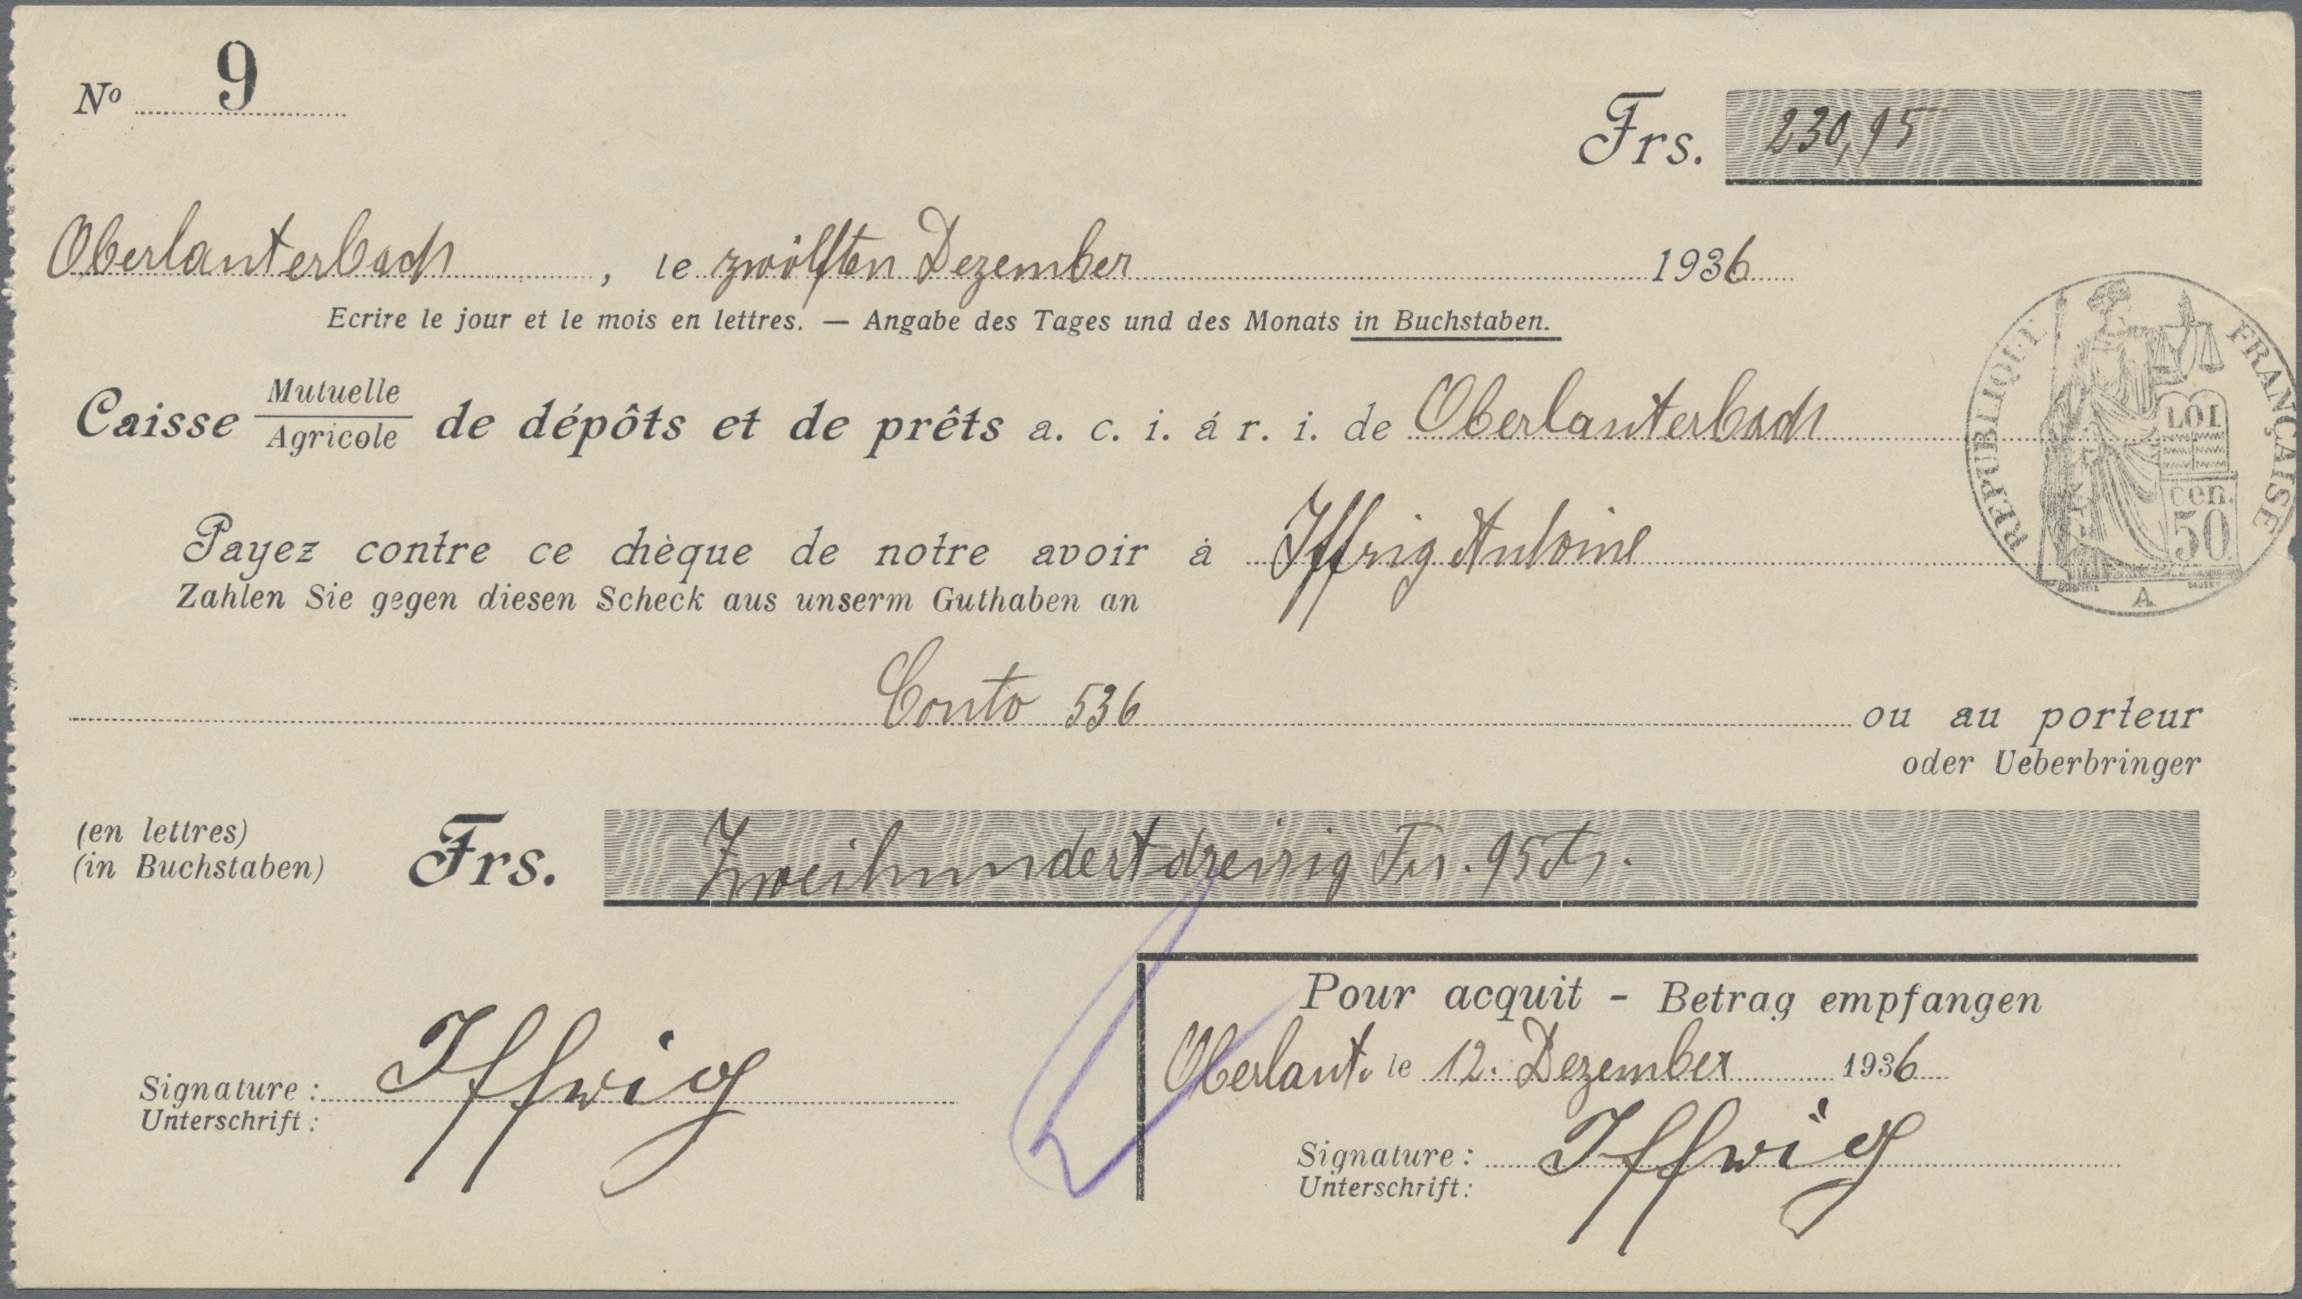 Nº 9
Frs. 230,95
Oberlauterbach, le zwölften Dezember 1936
Ecrire le jour et le mois en lettres. — Angabe des Tages und des Monats in Buchstaben.
Caisse Mutuelle
Agricole de dépôts et de prêts a. c. i. á r. i. de Oberlauterbach
Payez contre ce chèque de notre avoir à Iffrig Antoine
Zahlen Sie gegen diesen Scheck aus unserm Guthaben an
Conto 536 ou au porteur
oder Ueberbringer
(en lettres)
(in Buchstaben) Frs. Zweihundertdreissig Frs. 95
Pour acquit - Betrag empfangen
Oberlaut. le 12. Dezember 1936
Signature: Iffrig
Unterschrift:
Signature: Iffrig
Unterschrift:
REPUBLIQUE FRANÇAISE
LOI
cen.
50
A